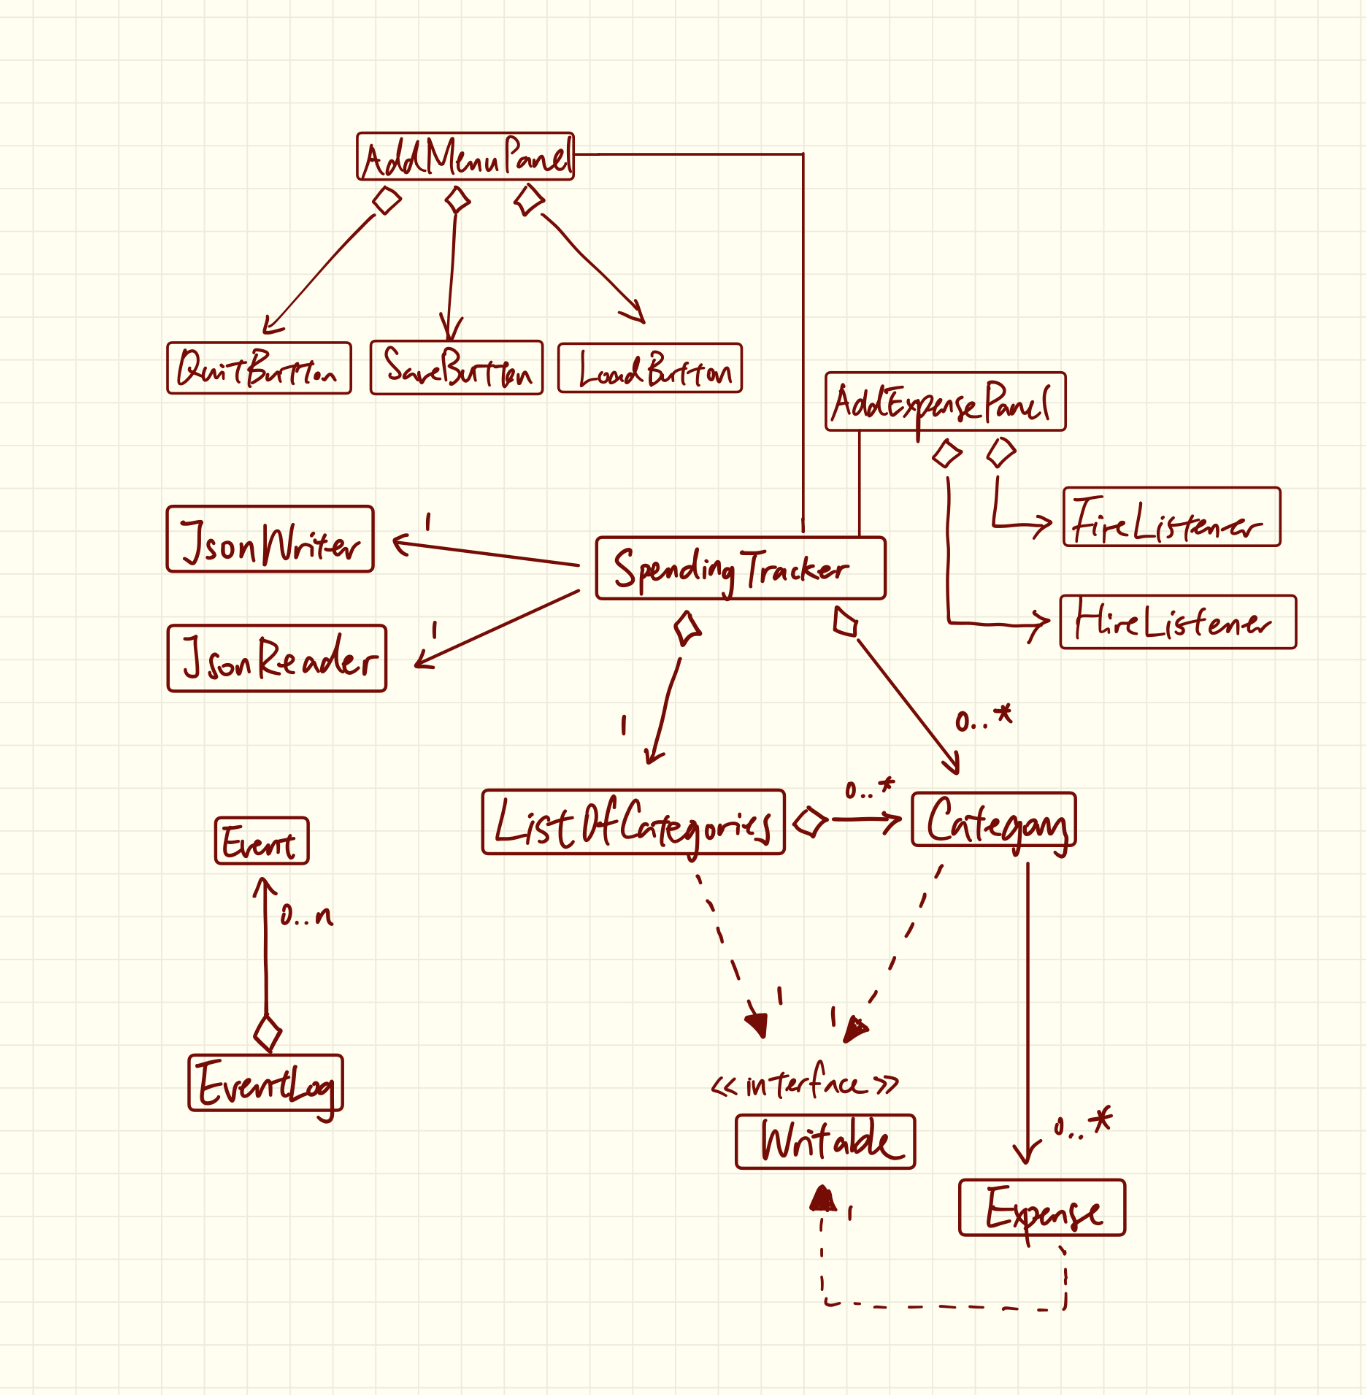 AddMenuPanel
QuitButton
SaveButton
LoadButton
AddExpensePanel
FireListener
HireListener
JsonWriter
1
SpendingTracker
JsonReader
1
1
0..*
ListOfCategories
0..*
Category
Event
0..n
EventLog
1
1
<<interface>>
Writable
0..*
1
Expense